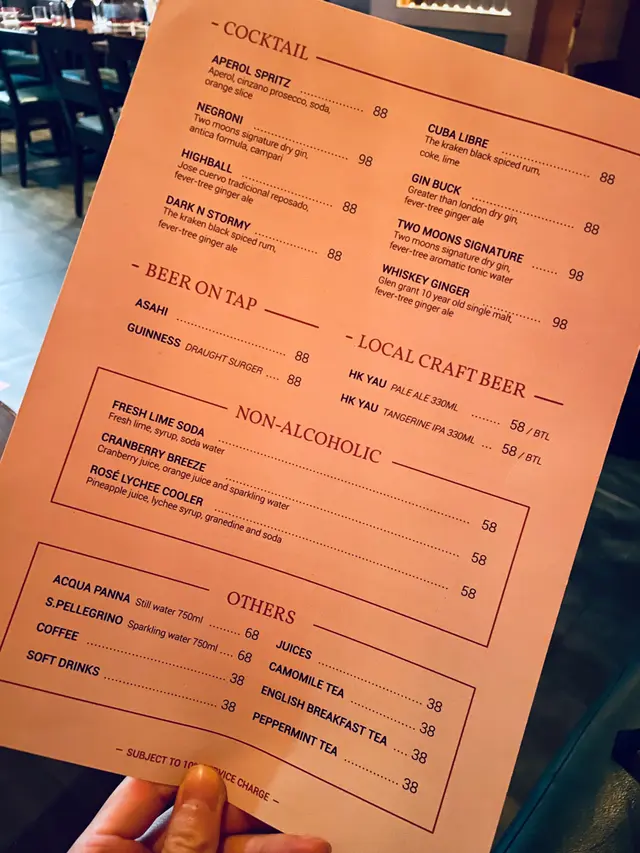 - COCKTAIL
APEROL SPRITZ ........ 88
Aperol, cinzano prosecco, soda,
orange slice
NEGRONI ........ 98
Two moons signature dry gin,
antica formula, campari
HIGHBALL ........ 88
Jose cuervo tradicional reposado,
fever-tree ginger ale
DARK N STORMY ........ 88
The kraken black spiced rum,
fever-tree ginger ale
CUBA LIBRE ........ 88
The kraken black spiced rum,
coke, lime
GIN BUCK ........ 88
Greater than london dry gin,
fever-tree ginger ale
TWO MOONS SIGNATURE ...... 98
Two moons signature dry gin,
fever-tree aromatic tonic water
WHISKEY GINGER ........ 98
Glen grant 10 year old single malt,
fever-tree ginger ale
- BEER ON TAP
ASAHI ........ 88
GUINNESS DRAUGHT SURGER .... 88
- LOCAL CRAFT BEER
HK YAU PALE ALE 330ML ...... 58 / BTL
HK YAU TANGERINE IPA 330ML ... 58 / BTL
NON-ALCOHOLIC
FRESH LIME SODA ........ 58
Fresh lime, syrup, soda water
CRANBERRY BREEZE ........ 58
Cranberry juice, orange juice and sparkling water
ROSÉ LYCHEE COOLER ........ 58
Pineapple juice, lychee syrup, granedine and soda
OTHERS
ACQUA PANNA Still water 750ml ........ 68
S.PELLEGRINO Sparkling water 750ml .... 68
COFFEE ........ 38
SOFT DRINKS ........ 38
JUICES ........ 38
CAMOMILE TEA ........ 38
ENGLISH BREAKFAST TEA .... 38
PEPPERMINT TEA ........ 38
- SUBJECT TO CHARGE -